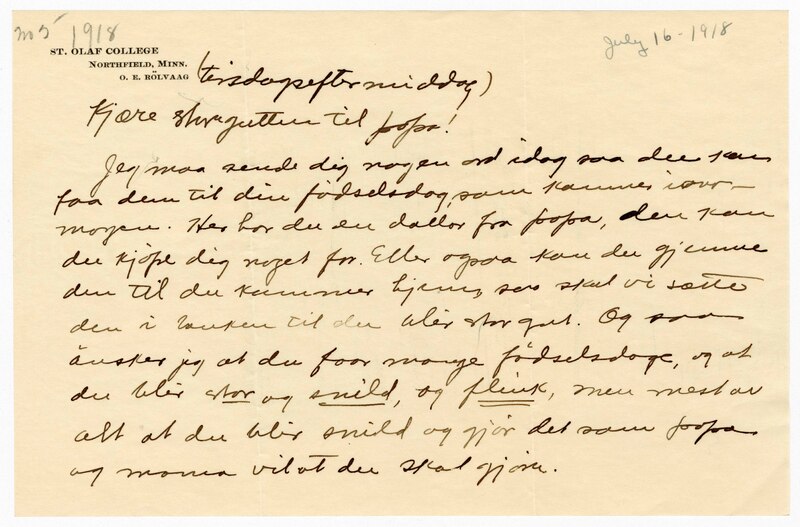 no 5 1918
July 16 - 1918
ST. OLAF COLLEGE
NORTHFIELD, MINN.
O. E. RÖLVAAG
(tirsdagseftermiddag)
Kjære storegutten til papa!
Jeg maa sende dig nogen ord idag saa du kan
faa dem til din födselsdag, som kommer iover-
morgen. Her har du en dollar fra papa, den kan
du kjöpe dig noget for. Eller ogsaa kan du gjemme
den til du kommer hjem, saa skal vi sætte
den i banken til du blir stor gut. Og saa
önsker jeg at du faar mange födselsdage, og at
du blir stor og snild, og flink, men mest av
alt at du blir snild og gjör det som papa
og mama vil at du skal gjöre.